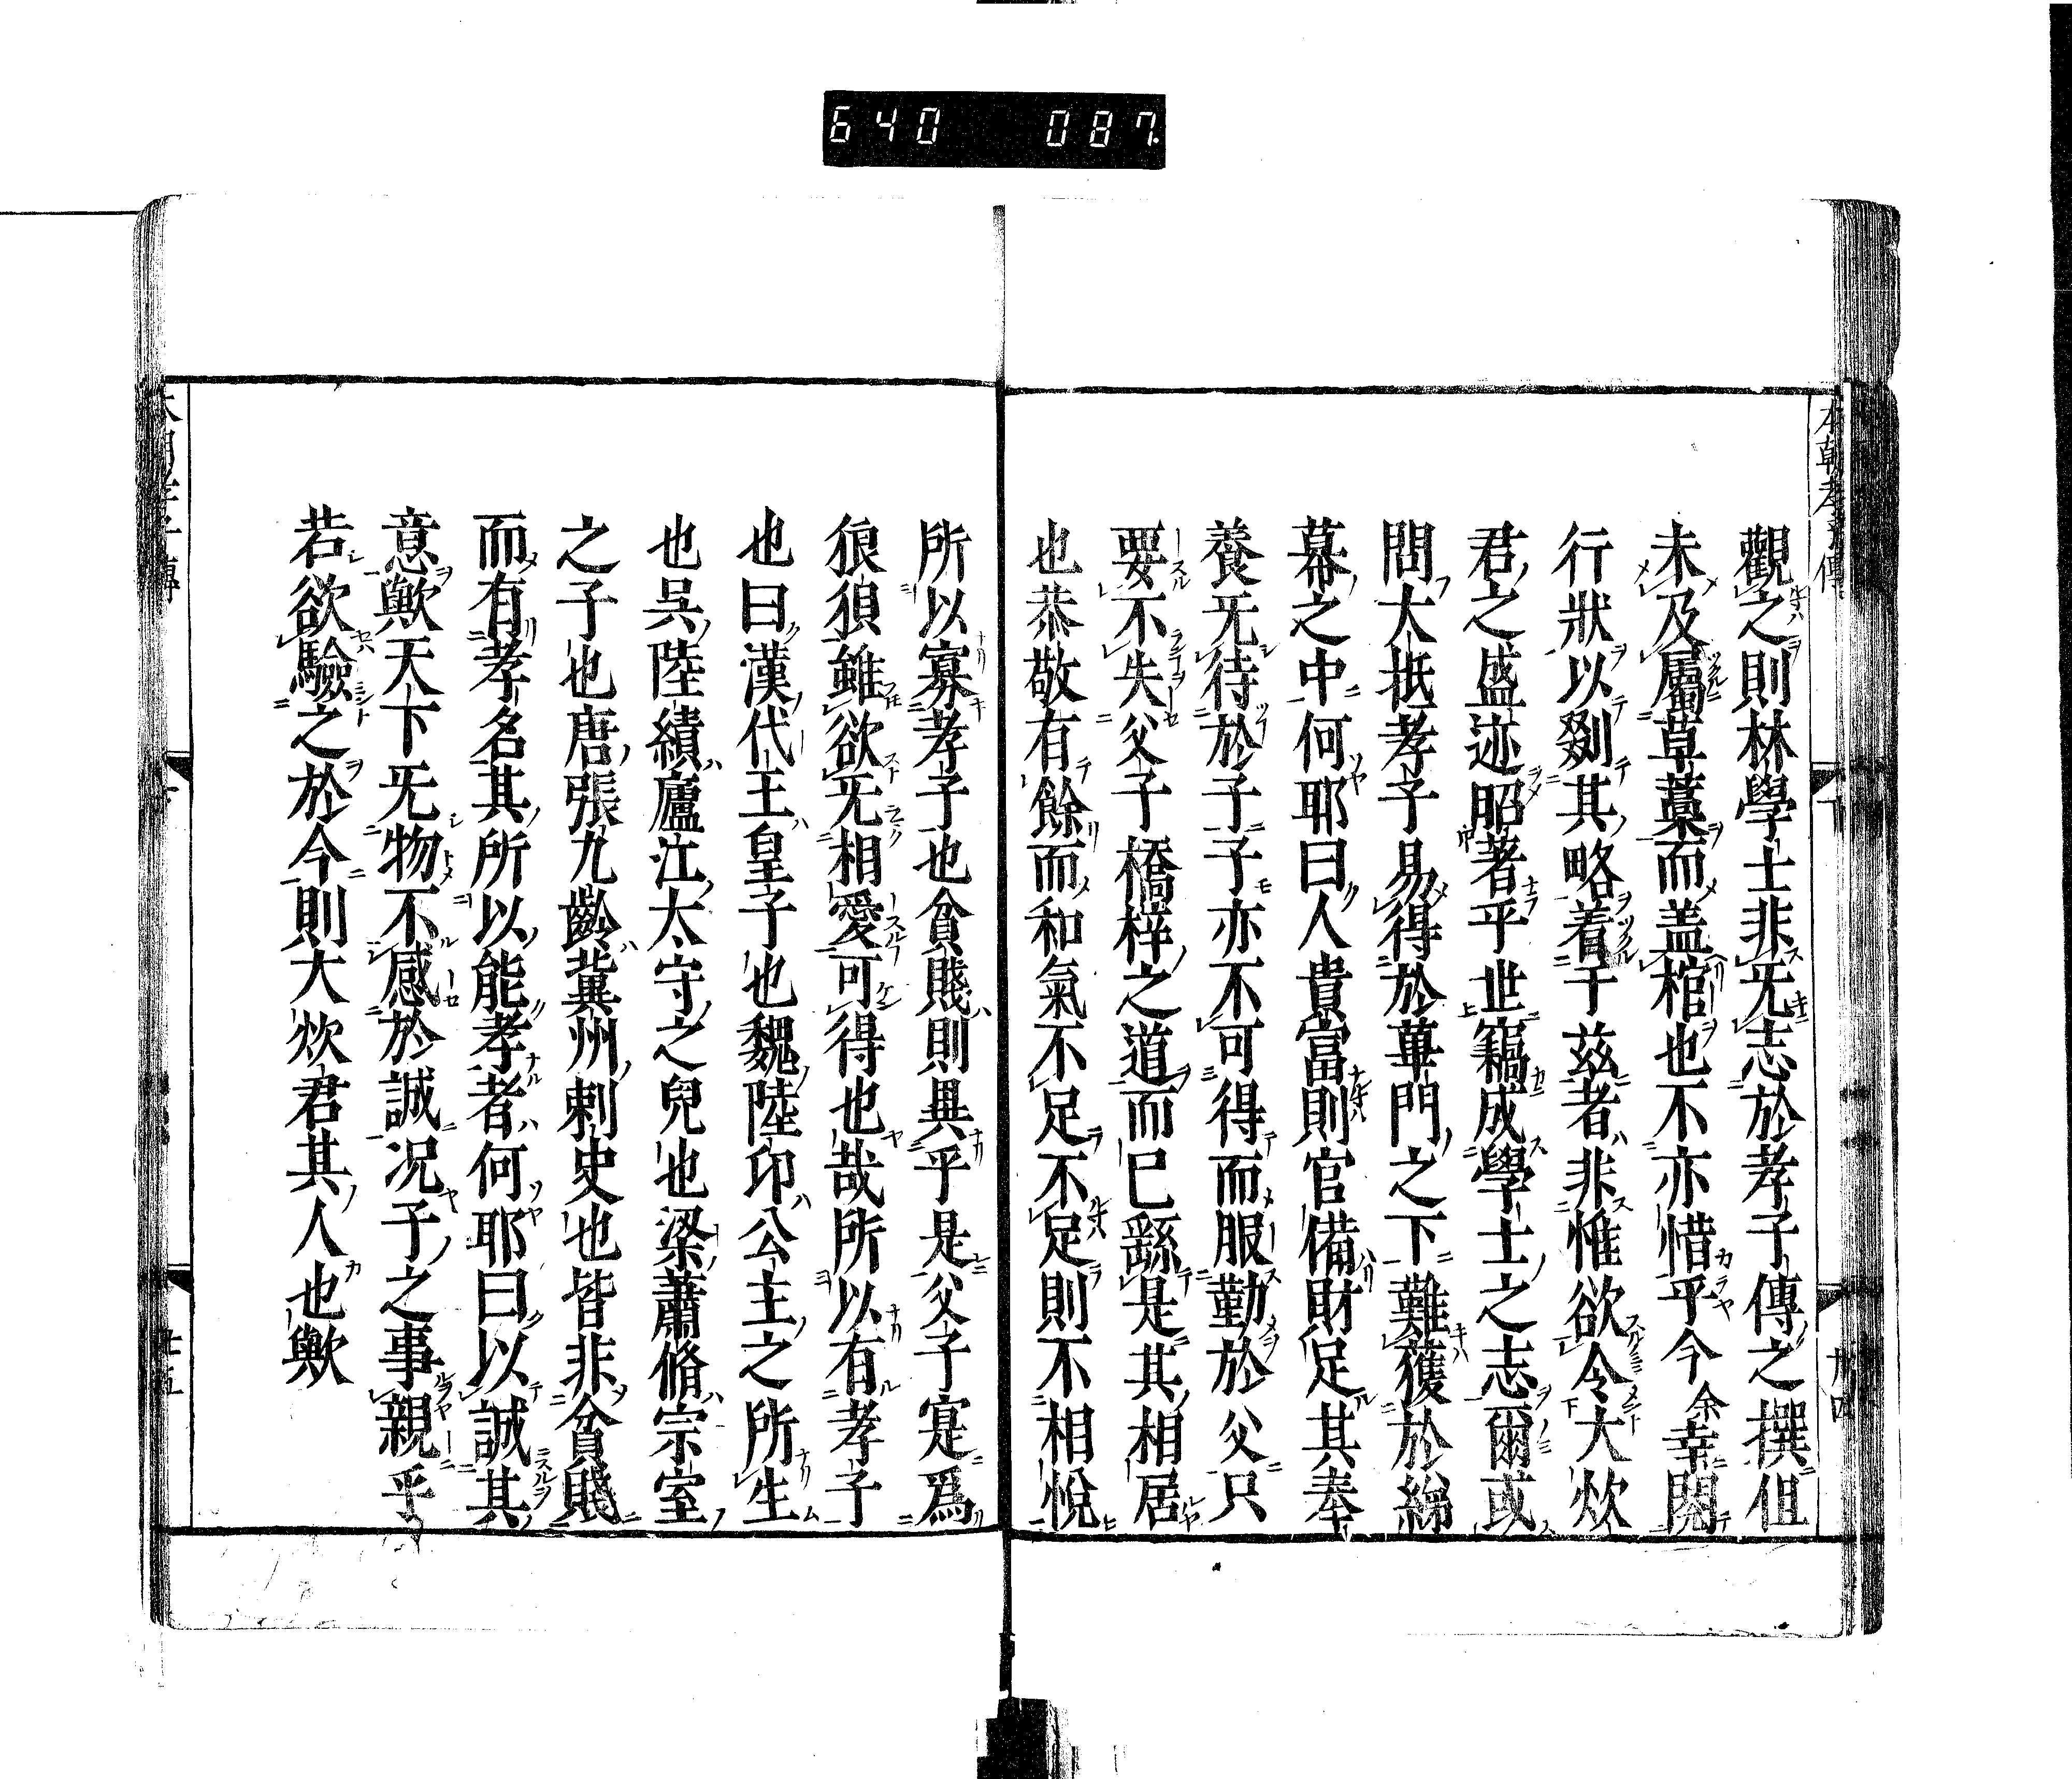 640 087
本朝孝子傳 下 卅四
觀之則林學士非无志於孝子傳之撰但
未及屬草藁而盖棺也不亦惜乎今余幸閱
行狀以剟其略着于茲者非惟欲令大炊
君之盛迹昭著乎世竊成學士之志爾或
問大抵孝子易得於蓽門之下難獲於綈
幕之中何耶曰人貴富則官備財足其奉
養无待於子子亦不可得而服勤於父只
要不失父子橋梓之道而已繇是其相居
也恭敬有餘而和氣不足不足則不相悅
所以寡孝子也貧賤則異乎是父子寔爲
狼狽雖欲无相愛可得也哉所以有孝子
也曰漢代王皇子也魏陸卬公主之所生
也呉陸績廬江太守之兒也梁蕭脩宗室
之子也唐張九齡冀州刺史也皆非貧賤
而有孝名其所以能孝者何耶曰以誠其
意歟天下无物不感於誠况子之事親乎
若欲驗之於今則大炊君其人也歟
本朝孝子傳 下 卅五